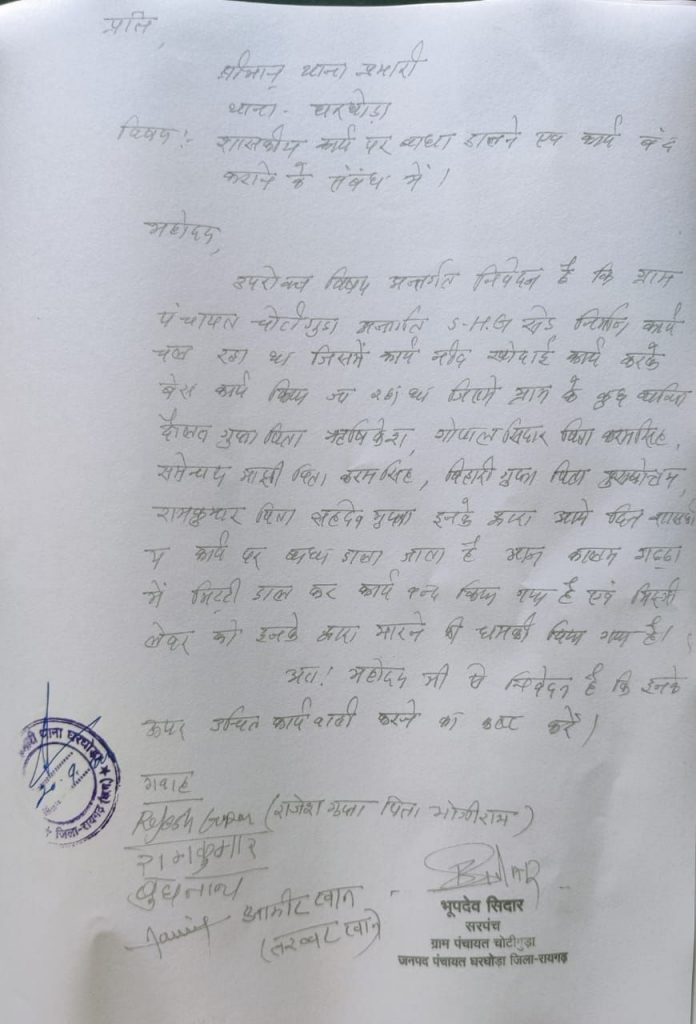 प्रति,
श्रीमान् थाना प्रभारी
थाना - घरघोड़ा
विषय :- शासकीय कार्य पर बाधा डालने एवं कार्य बंद
कराने के संबंध में।
महोदय,
उपरोक्त विषय अन्तर्गत निवेदन है कि ग्राम
पंचायत चोटीगुडा अन्तर्गत S.H.G शेड निर्माण कार्य
चल रहा था जिसमें कार्य नींव खोदाई कार्य करके
बेस कार्य किया जा रहा था जिसमें ग्राम के कुछ व्यक्तियों
गुप्ता पिता ऋषिकेश, गोपाल सिदार पिता करमसिंह,
पिता करमसिंह, बिहारी गुप्ता पिता पुरुषोत्तम,
रामकुमार पिता सहदेव गुप्ता इनके द्वारा आये दिन शासकी
य कार्य पर बाधा डाला जाता है आज कालम गढ्ढा
में मिट्टी डाल कर कार्य बन्द किया गया है एवं मिस्त्री
लेबर को इनके द्वारा मारने की धमकी दिया गया है।
अतः महोदय जी से निवेदन है कि इनके
ऊपर उचित कार्यवाही करने का कष्ट करें।
थाना घरघोड़ा
जिला-रायगढ़ (छ.ग.)
गवाह
Rajesh Gupta (राजेश गुप्ता पिता मोजीराम)
रामकुमार
बुधनाथ
खान
भूपदेव सिदार
सरपंच
ग्राम पंचायत चोटीगुड़ा
जनपद पंचायत घरघोड़ा जिला-रायगढ़